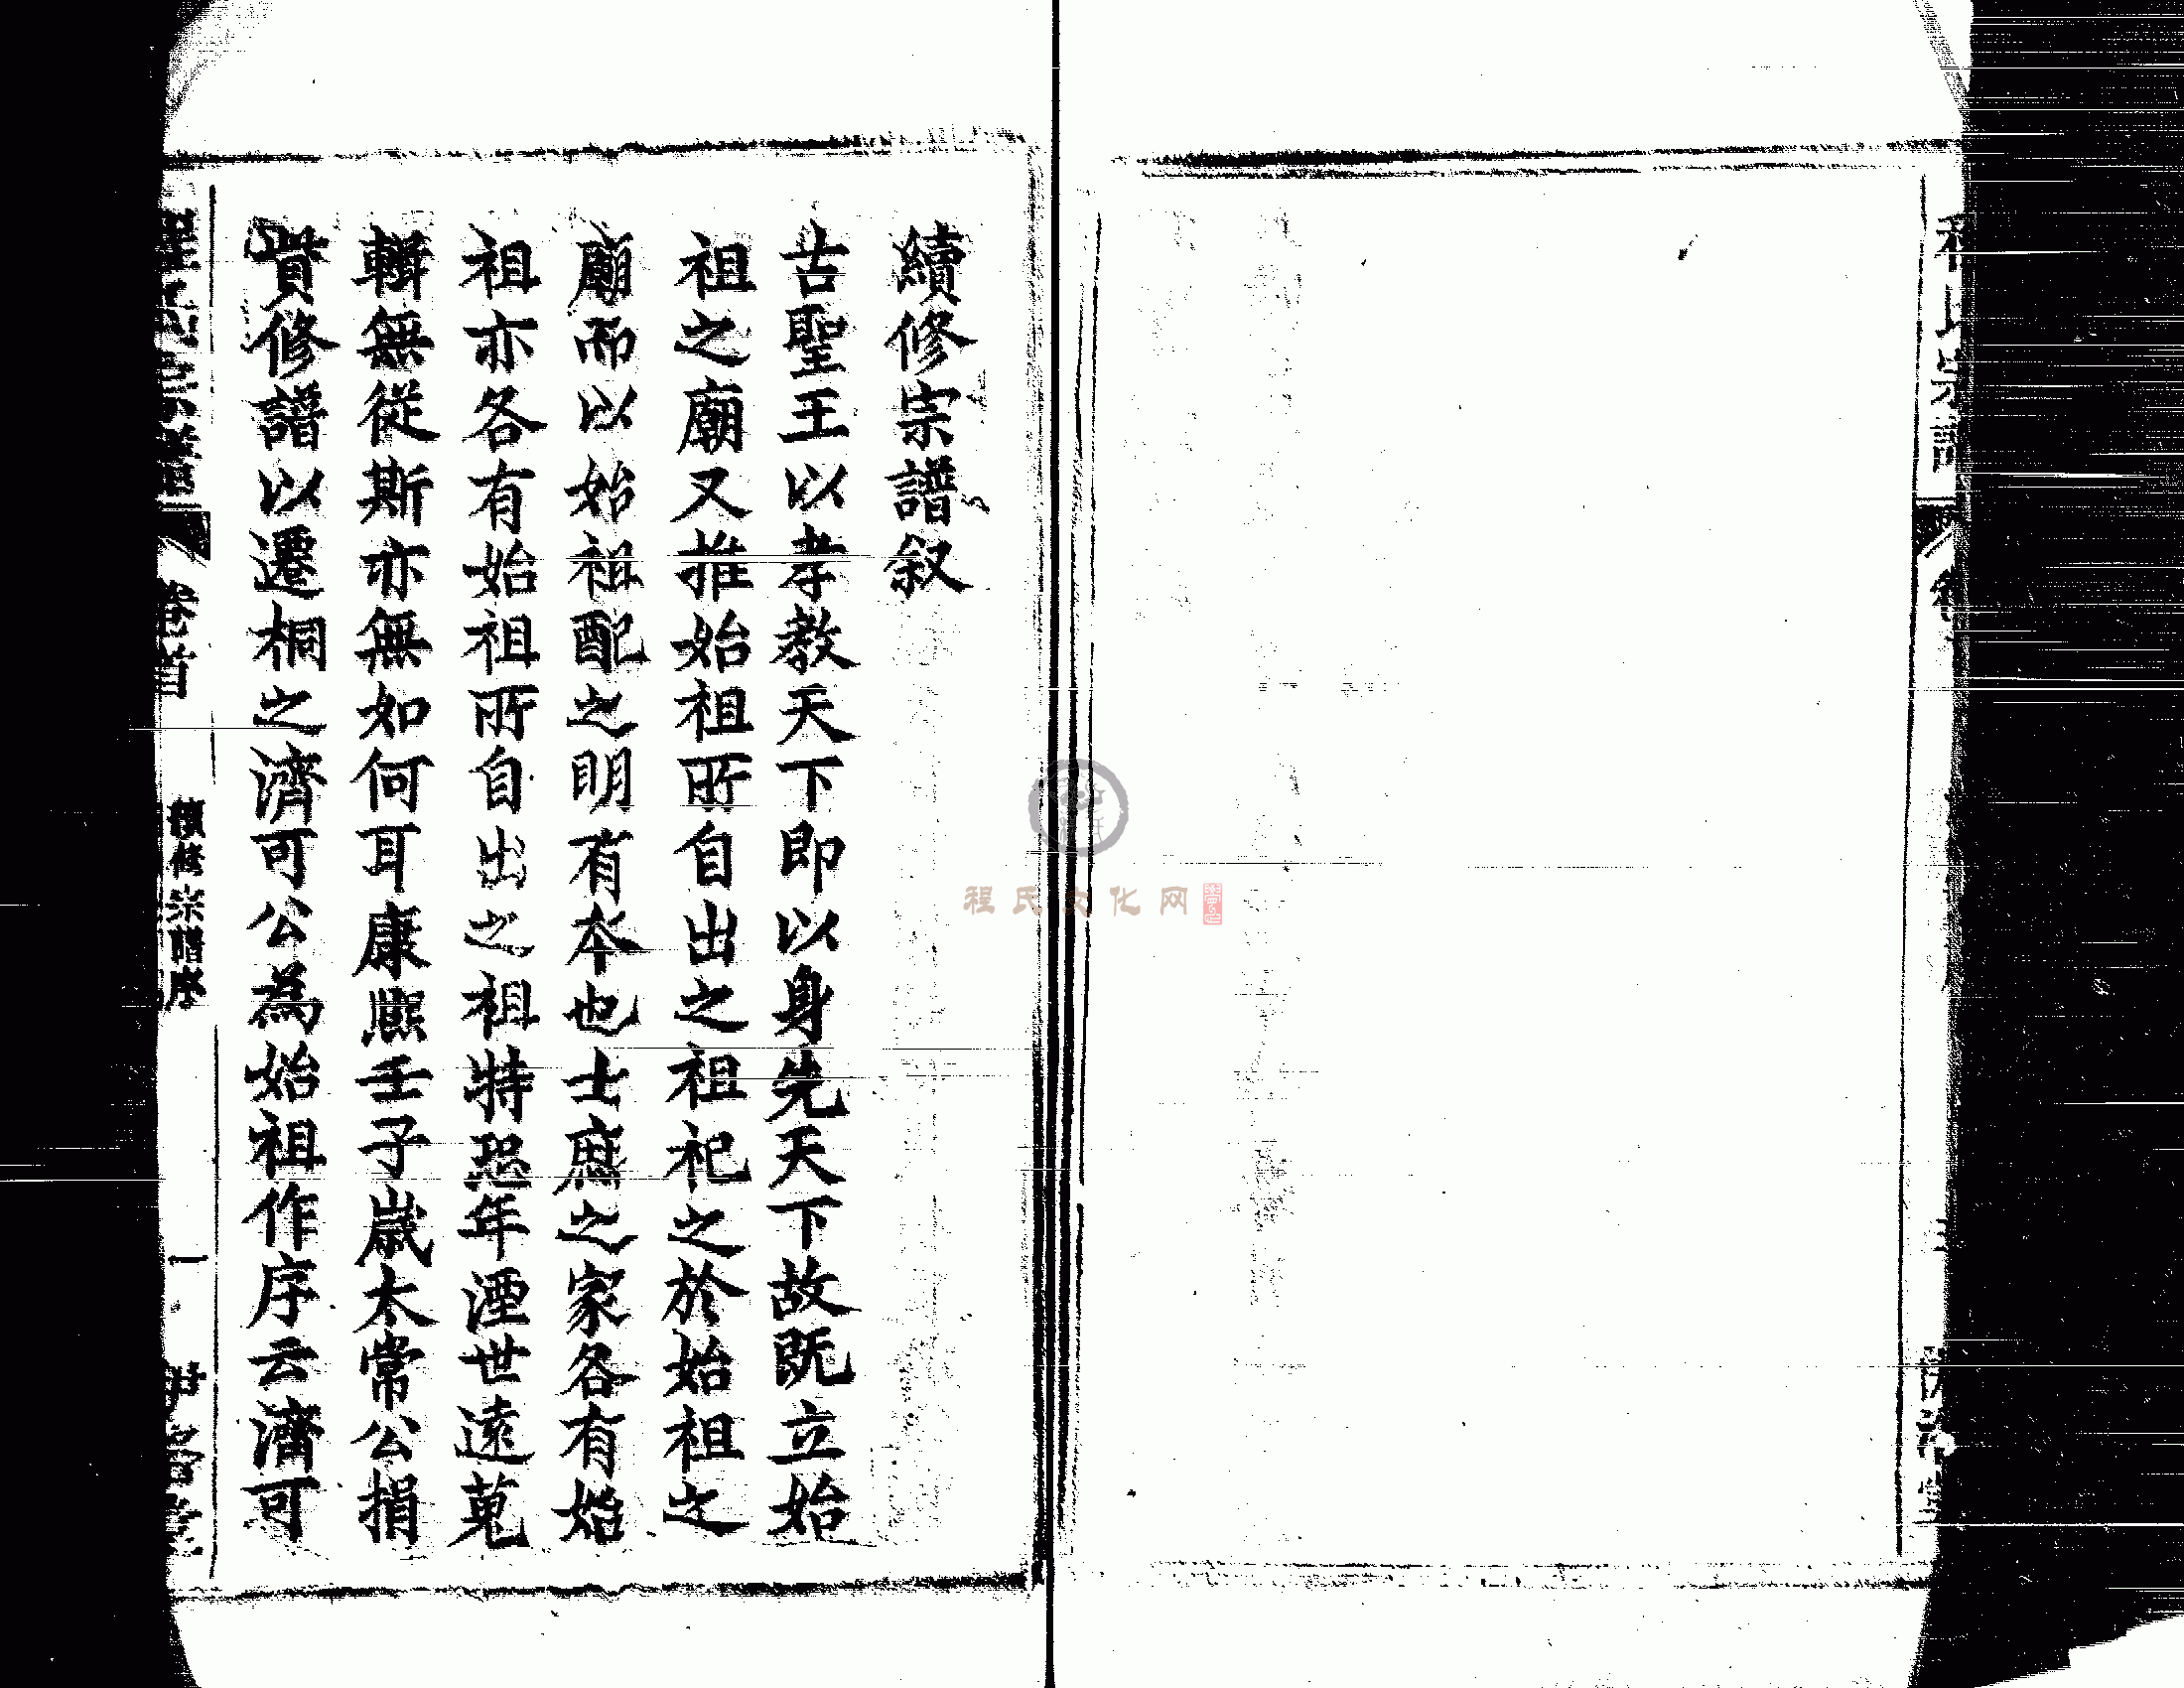 續修宗譜叙
古聖王以孝教天下即以身先天下故既立始
祖之廟又推始祖所自出之祖祀之於始祖之
廟而以始祖配之明有本也士庶之家各有始
祖亦各有始祖所自出之祖特熙年湮世遠蒐
輯無從斯亦無如何耳康熙壬子歲太常公捐
貲修譜以遷桐之濟可公為始祖作序云濟可
程氏宗譜
卷首
續修宗譜序
一
程氏宗譜
程氏文化网